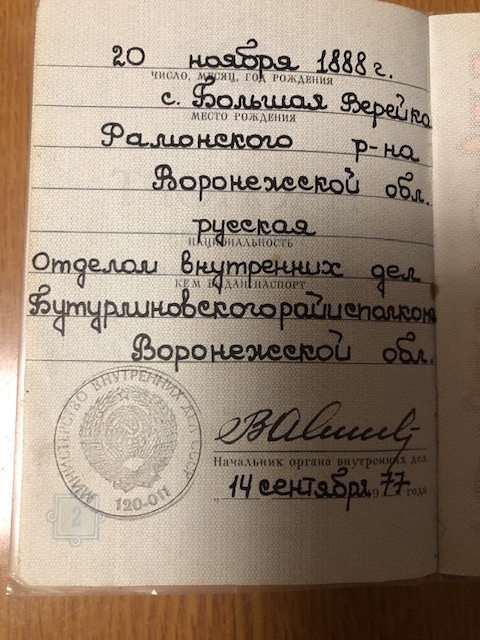 20 ноября 1888 г.
ЧИСЛО, МЕСЯЦ, ГОД РОЖДЕНИЯ
с. Большая Верейка
МЕСТО РОЖДЕНИЯ
Рамонского р-на
Воронежсской обл.
русская
НАЦИОНАЛЬНОСТЬ
Отделом внутренних дел
КЕМ ВЫДАН ПАСПОРТ
Бутурлиновского райисполком
Воронежсской обл.
МИНИСТЕРСТВО ВНУТРЕННИХ ДЕЛ СССР
120-011
Начальник органа внутренних дел
„14 сентября 1977 года
2